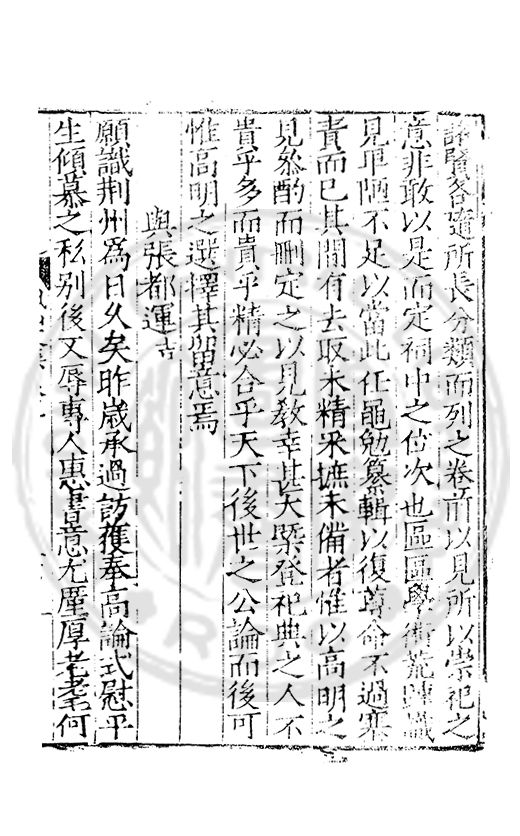 諸賢各隨所長分類而列之卷前以見所以崇祀之
意非敢以是而定祠中之位次也區區學術荒陋識
見卑陋不足以當此任黽勉纂輯以復尊命不過塞
責而已其間有去取未精采摭未備者惟以高明之
見叅酌而刪定之以見教幸甚大槩登祀典之人不
貴乎多而貴乎精必合乎天下後世之公論而後可
惟高明之選擇其留意焉
與張都運吉
願識荆州為日久矣昨歲承過訪獲奉高論式慰平
生傾慕之私别後又辱專人惠書意尤厪厚老耄何